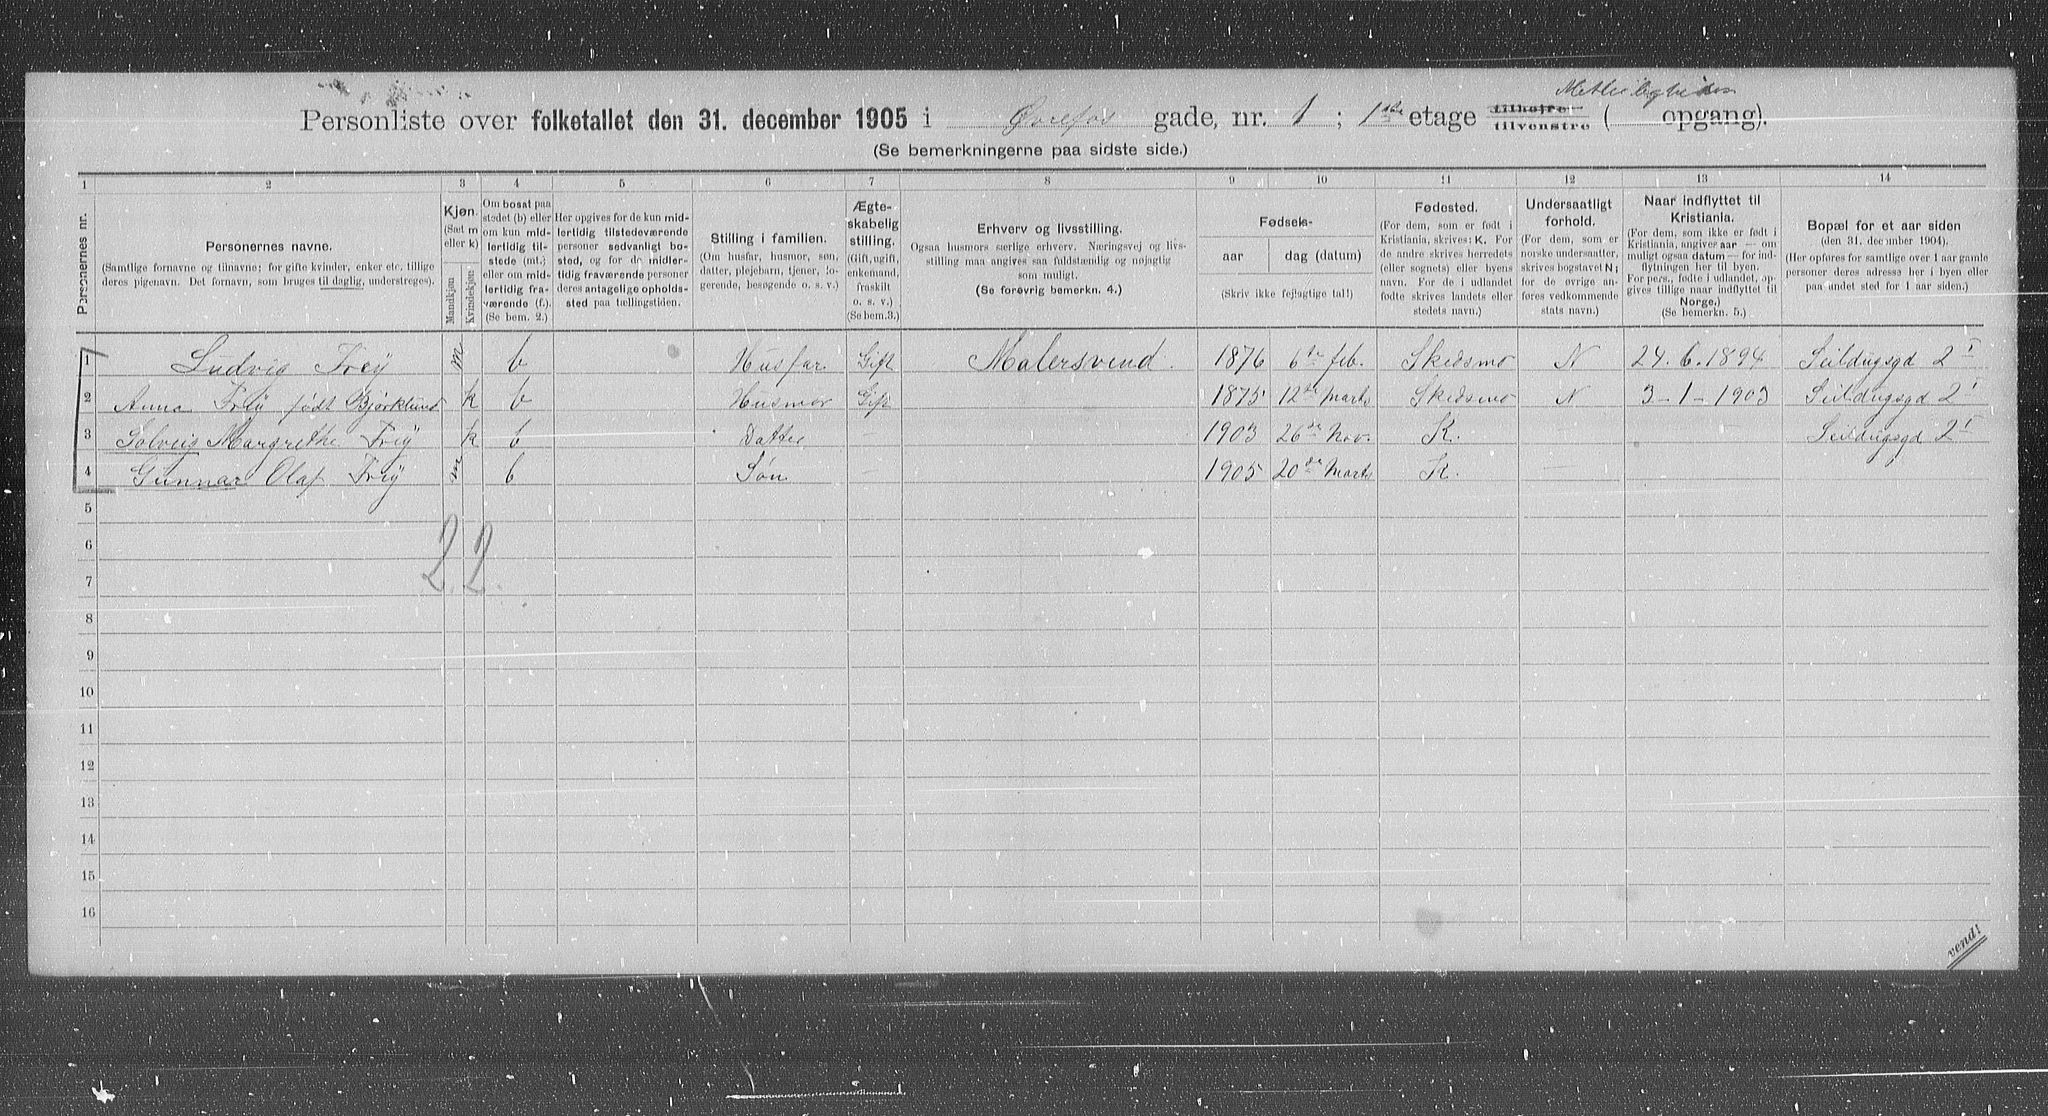 Personliste over folketallet den 31. december 1905 i Øvrefos gade, nr. 1 ; 1ste etage tilhøjre tilvenstre ( opgang).
(Se bemerkningerne paa sidste side.)
1 2 3 4 5 6 7 8 9 10 11 12 13 14
Personernes nr.
Personernes navne.
(Samtlige fornavne og tilnavne; for gifte kvinder, enker etc. tillige deres pigenavn. Det fornavn, som bruges til daglig, understreges).
Kjøn. (Sæt m eller k)
Mandkjøn
Kvindekjøn
Om bosat paa stedet (b) eller om kun midlertidig tilstede (mt.) eller om midlertidig fraværende (f.). (Se bem. 2.)
Her opgives for de kun midlertidig tilstedeværende personer sedvanligt bosted, og for de midlertidig fraværende personer deres antagelige opholdssted paa tællingstiden.
Stilling i familien.
(Om husfar, husmor, søn, datter, plejebarn, tjener, logerende, besøgende o. s. v.)
Ægteskabelig stilling.
(Gift, ugift, enkemand, fraskilt o. s. v.) (Se bem.3.)
Erhverv og livsstilling.
Ogsaa husmors særlige erhverv. Næringsvej og livsstilling maa angives saa fuldstændig og nøjagtig som muligt.
(Se forøvrig bemerkn. 4.)
Fødsels-
aar
dag (datum)
(Skriv ikke fejlagtige tal!)
Fødested.
(For dem, som er født i Kristiania, skrives: K. For de andre skrives herredets (eller sognets) eller byens navn. For de i udlandet fødte skrives landets eller stedets navn.)
Undersaatligt forhold.
(For dem, som er norske undersaatter, skrives bogstavet N; for de øvrige anføres vedkommende stats navn.)
Naar indflyttet til Kristiania.
(For dem, som ikke er født i Kristiania, angives aar — om muligt ogsaa datum — for indflytningen her til byen. For pers., fødte i udlandet, opgives tillige naar indflyttet til Norge.)
(Se bemerkn. 5.)
Bopæl for et aar siden
(den 31. december 1904).
(Her opføres for samtlige over 1 aar gamle personer deres adresse her i byen eller paa andet sted for 1 aar siden.)
1 Ludvig Frey m b Husfar Gift Malersvend. 1876 6te feb. Skedsmo N 24. 6. 1894 Seildugsgd 2 I
2 Anna Frey født Bjørklund k b Husmor Gift 1875 12te Marts Skedsmo N 3 - 1 - 1903 Seildugsgd 2 I
3 Solveig Margrethe Frey k b Datter — 1903 26de Nov. K. Seildugsgd 2 I
4 Gunnar Olaf Frey m b Søn — 1905 20de Marts K. —
5
6
2. 2.
7
8
9
10
11
12
13
14
15
16
vend!